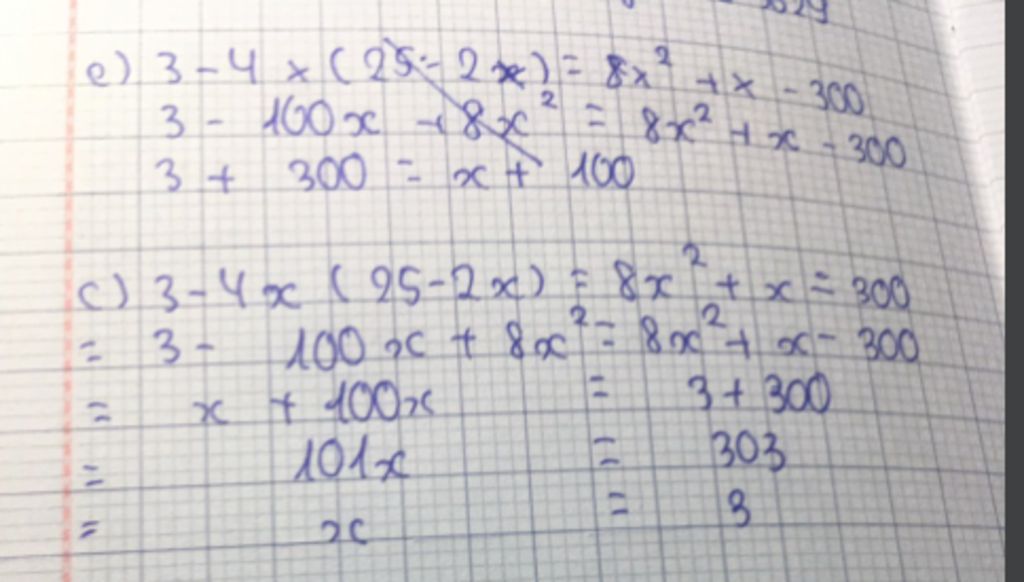 e) 3 - 4 x (25 - 2x) = 8x² + x - 300
3 - 100x + 8x² = 8x² + x - 300
3 + 300 = x + 100
c) 3 - 4x (25 - 2x) = 8x² + x = 300
= 3 - 100x + 8x² = 8x² + x - 300
= x + 100x = 3 + 300
= 101x = 303
= x = 3